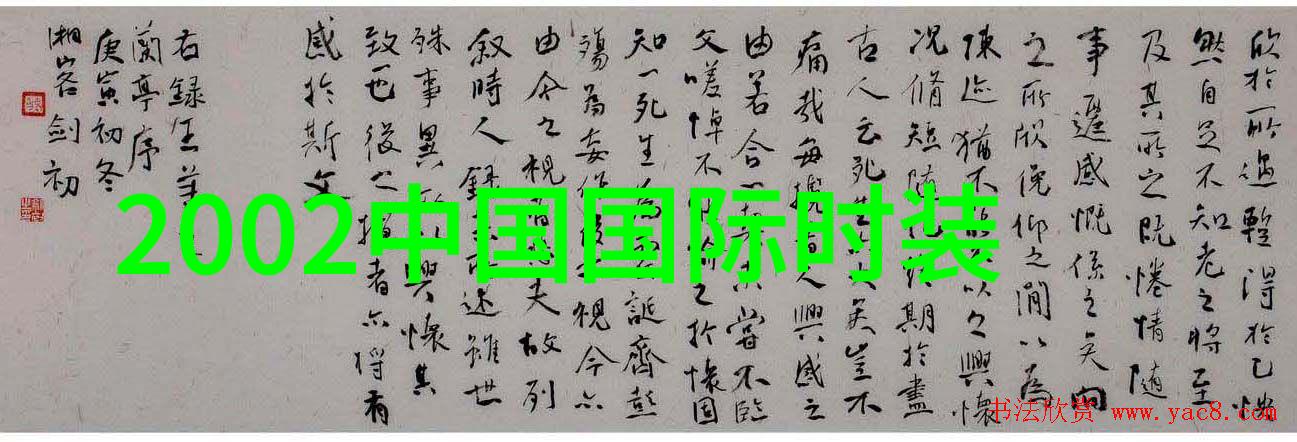 欣於所遇暫得於己快
然自足不知老之將至
及其所之既惓情隨
事遷感慨係之矣向
之所欣俛仰之閒以為
陳迹猶不以之興懷
況脩短隨終期於盡
古人云死生大矣豈不
痛哉每攬昔人興感之
由若合一契未嘗不臨
文嗟悼不能喻之於懷固
知一死生為誕齊彭
殤為妄作後視今亦
由今之視昔悲夫故列
敘時人錄其所述雖世
殊事異所以興懷其
致一也後之攬者亦將有
感於斯文
右錄王羲
蘭亭序
庚寅初冬
湘客劍初
2002中国国际时装
书法欣赏 www.yac8.com